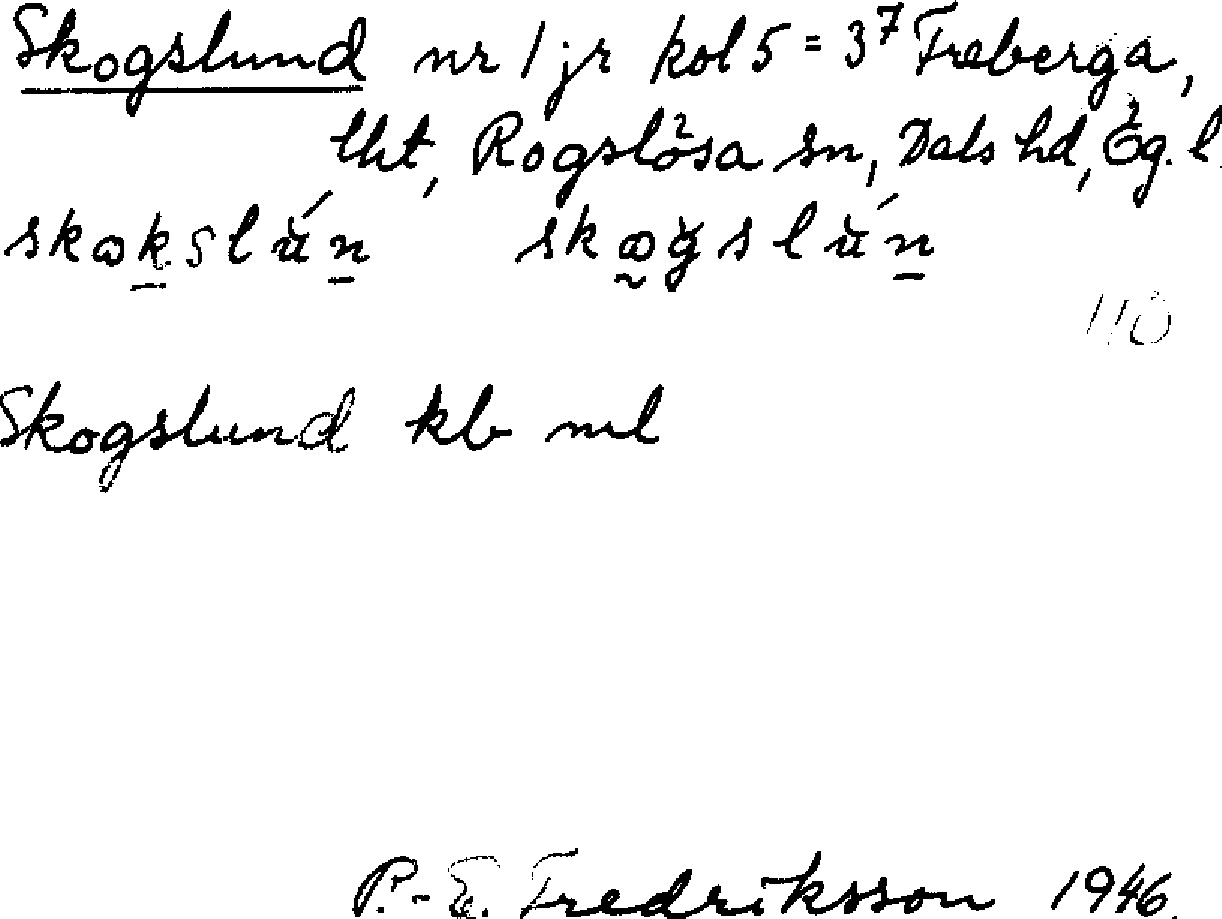 Skogslund nr 1 jr kol 5 = 3⁷ Freberga,
lht, Rogslösa sn, Dals hd, Ög. l.
skokslún skogslún
110
Skogslund kb ml
P.-E. Fredriksson 1946.